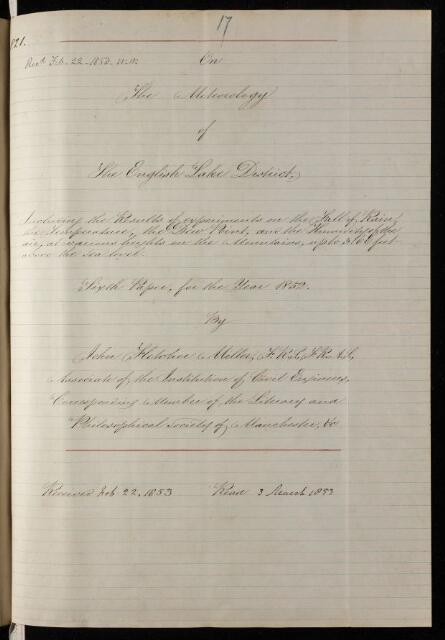 17
121.
Rec.d Feb. 22. 1853. On
The Meteorology
of
The English Lake District,
Including the Results of experiments on the Fall of Rain,
the Temperature, the Dew Point, and the Humidity of the
air, at various heights on the Mountains, up to 3166 feet
above the sea level.
Sixth Paper, for the Year 1852.
By
John Fletcher Miller, F.R.S, F.R.A.S,
Associate of the Institution of Civil Engineers,
Corresponding Member of the Literary and
Philosophical Society of Manchester, &c
Received Feb 22. 1853 Read 3 March 1853